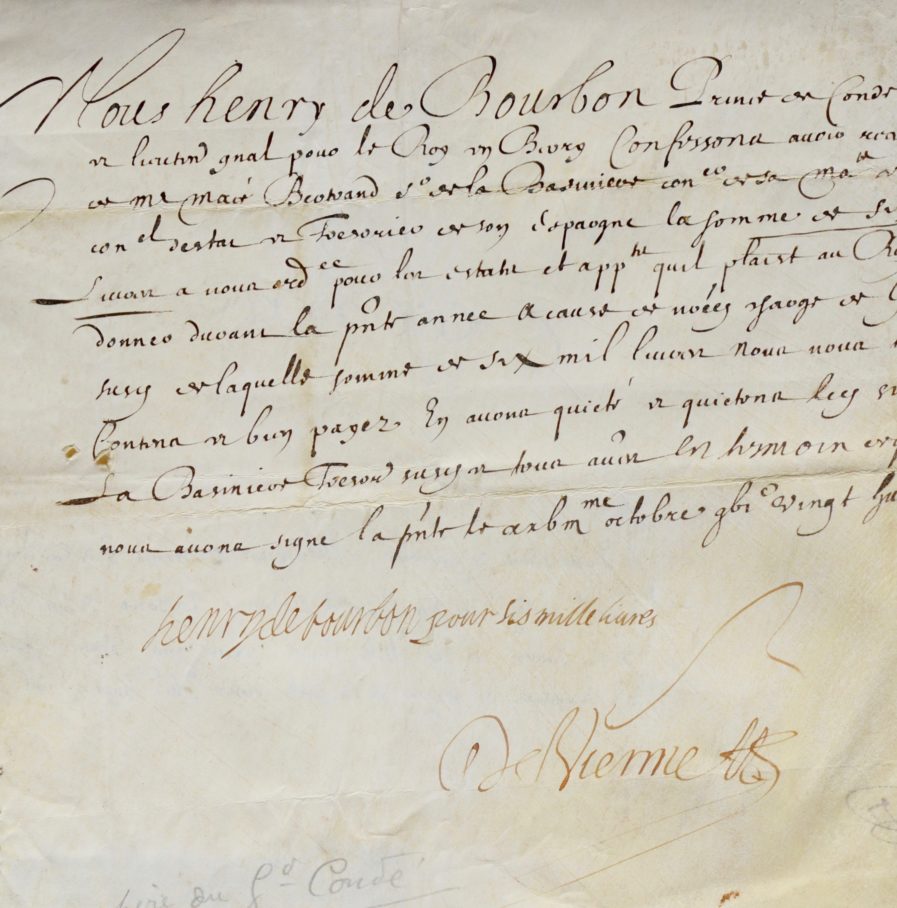 Nous henry de Bourbon Prince de Conde
et lieuten gnal pour le Roy en Berry Confessons avoir
de Me Macé Bertrand Sr de la Basiniere coner de sa Mate
conel destat et Tresorier de son Espargne la somme de
Livres a nous ordee pour les estatz et appte quil plaist au
donner durant la pnte annee a cause de charge de
susd de laquelle somme de six mil livres Nous nous
Contens et bien payez En avons quicté et quictons led
La Basiniere Tresor susd et tous aues En tesmoin
nous avons signe la pnte le me octobre gbic vingt
henry de bourbon pour sis mille livres
De Vienne
père du Gd Condé